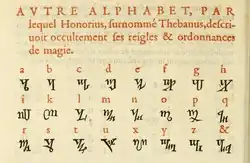 AVTRE ALPHABET, PAR
lequel Honorius, ſurnommé Thebanus, deſcri-
uoit occultement ſes reigles & ordonnances
de magie.
a b c d e f g h
i k l m n o p q
r s t u x y z &